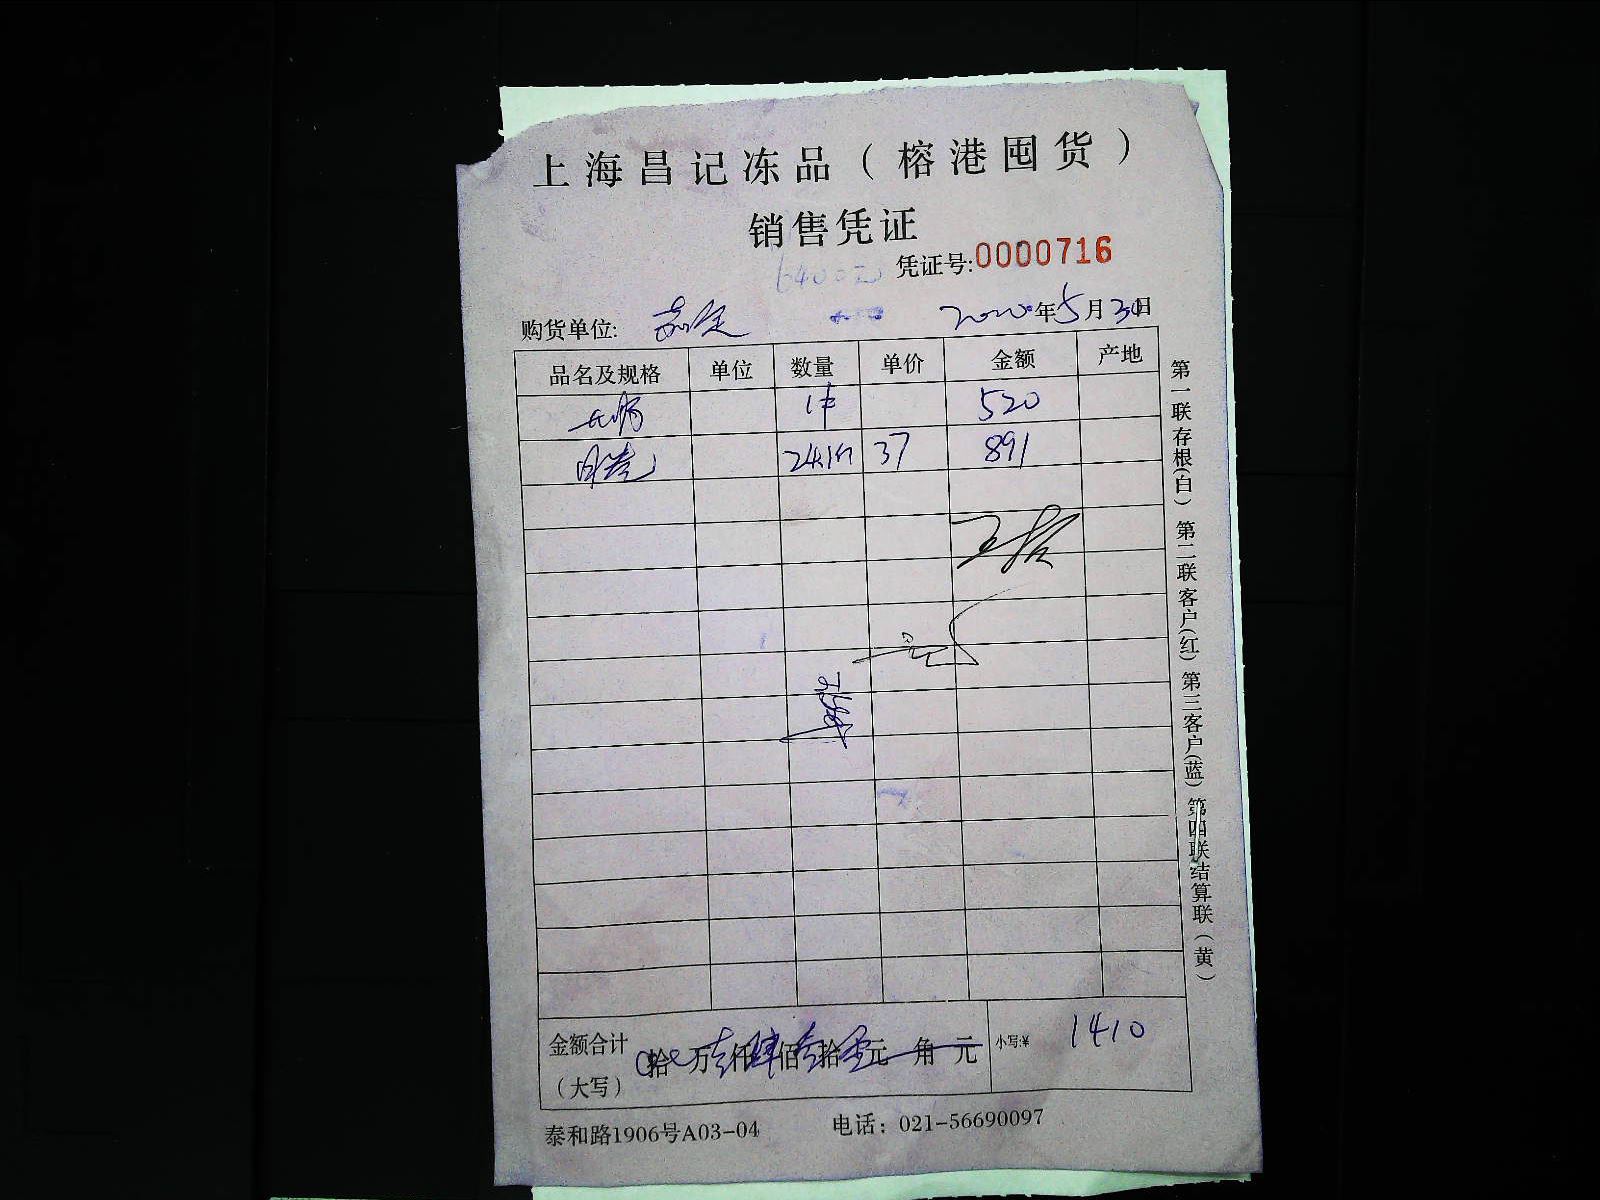 上海昌记冻品（榕港囤货）
销售凭证
6400元
凭证号:0000716
购货单位: 嘉定 2020年5月30日
品名及规格 单位 数量 单价 金额 产地
1件 520
24.1斤 37 891
金额合计 拾 万壹仟肆佰壹拾零元 角 元 小写:¥ 1410
（大写）
泰和路1906号A03-04 电话：021-56690097
第一联存根(白) 第二联客户(红) 第三客户(蓝) 第四联结算联(黄)